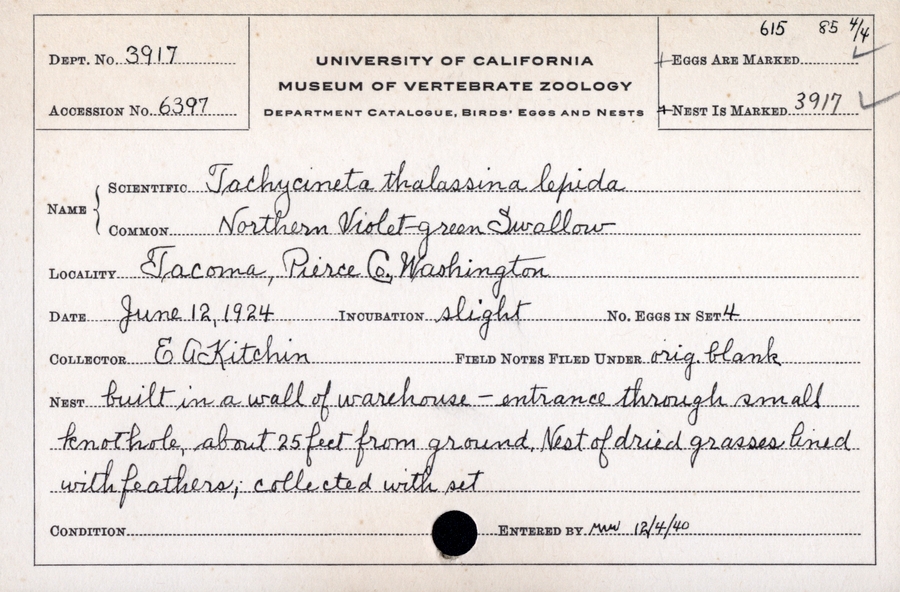 615 85 4/4
Dept. No. 3917
UNIVERSITY OF CALIFORNIA
Eggs Are Marked
MUSEUM OF VERTEBRATE ZOOLOGY
Accession No. 6397
Department Catalogue, Birds' Eggs and Nests
Nest Is Marked 3917
Name
Scientific Tachycineta thalassina lepida
Common Northern Violet-green Swallow
Locality Tacoma, Pierce Co., Washington
Date June 12, 1924 Incubation slight No. Eggs in Set 4
Collector E A Kitchin Field Notes Filed Under orig. blank
Nest built in a wall of warehouse – entrance through small
knothole, about 25 feet from ground. Nest of dried grasses lined
with feathers; collected with set
Condition Entered by 12/4/40